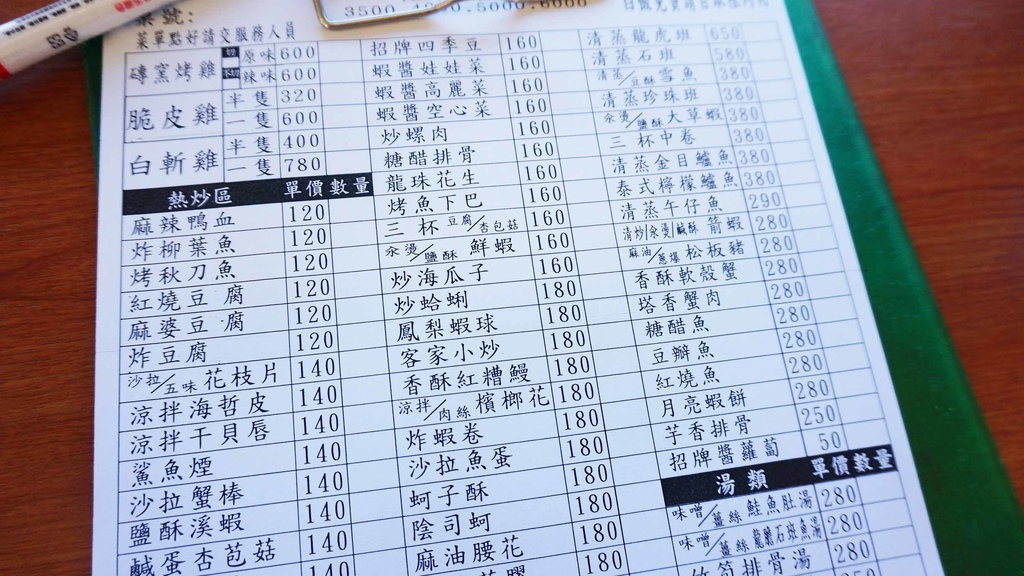 桌號:
菜單點好請交服務人員
3500.4000.5000.6000
磚窯烤雞 原味 600
辣味 600
脆皮雞 半隻 320
一隻 600
白斬雞 半隻 400
一隻 780
熱炒區 單價 數量
麻辣鴨血 120
炸柳葉魚 120
烤秋刀魚 120
紅燒豆腐 120
麻婆豆腐 120
炸豆腐 120
沙拉/五味花枝片 140
涼拌海哲皮 140
涼拌干貝唇 140
鯊魚煙 140
沙拉蟹棒 140
鹽酥溪蝦 140
鹹蛋杏苞菇 140
招牌四季豆 160
蝦醬娃娃菜 160
蝦醬高麗菜 160
蝦醬空心菜 160
炒螺肉 160
糖醋排骨 160
龍珠花生 160
烤魚下巴 160
三杯豆腐/杏包菇 160
汆燙/鹽酥鮮蝦 160
炒海瓜子 160
炒蛤蜊 180
鳳梨蝦球 180
客家小炒 180
香酥紅糟鰻 180
涼拌/肉絲檳榔花 180
炸蝦卷 180
沙拉魚蛋 180
蚵子酥 180
陰司蚵 180
麻油腰花 180
清蒸龍虎班 650
清蒸石班 580
清蒸/豆酥雪魚 380
清蒸珍珠班 380
汆燙/鹽酥大草蝦 380
三杯中卷 380
清蒸金目鱸魚 380
泰式檸檬鱸魚 380
清蒸午仔魚 290
清炒/汆燙/鹹酥箭蝦 280
麻油/蔥爆松板豬 280
香酥軟殼蟹 280
塔香蟹肉 280
糖醋魚 280
豆瓣魚 280
紅燒魚 280
月亮蝦餅 280
芋香排骨 250
招牌醬蘿蔔 50
湯類 單價 數量
味噌/薑絲鮭魚肚湯 280
味噌/薑絲龍膽石斑魚湯 280
竹筍排骨湯 280